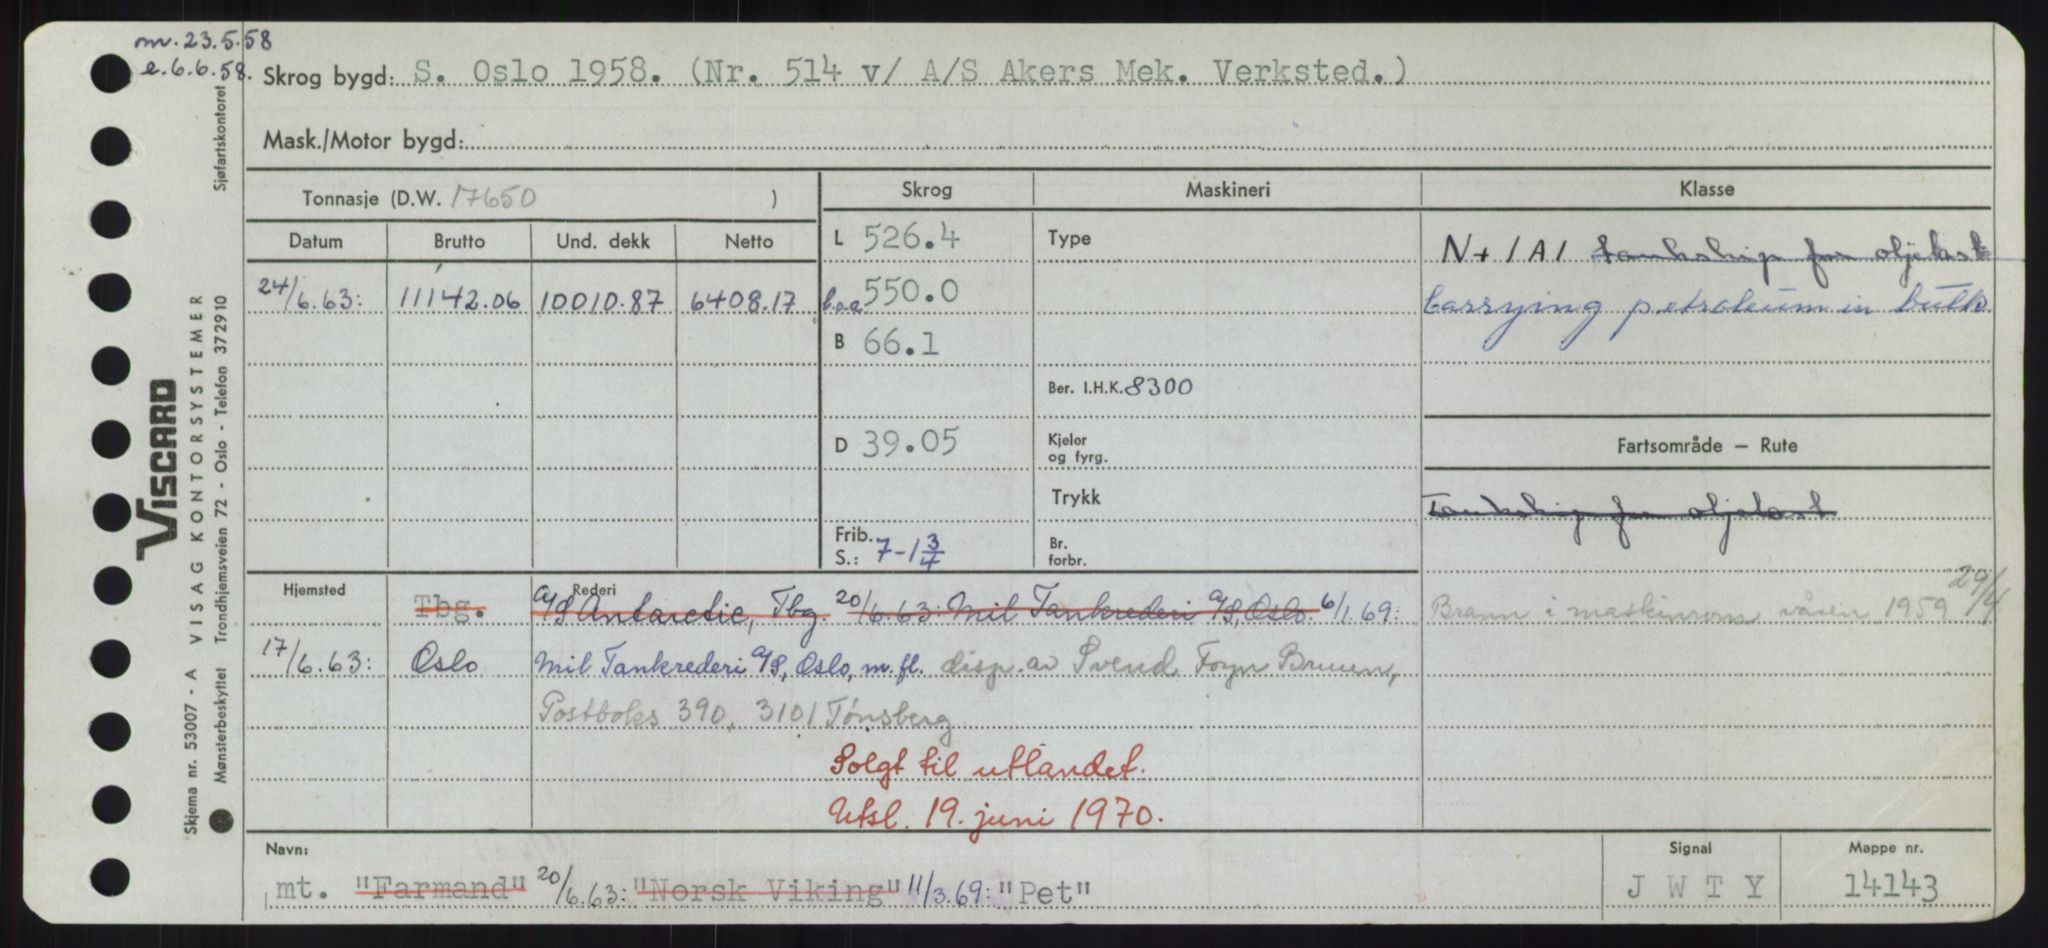 m. 23.5.58
e. 6.6.58. Skrog bygd: S. Oslo 1958. (Nr. 514 v/ A/S Akers Mek. Verksted.)
Mask./Motor bygd:
Tonnasje (D.W. 17650 )
Skrog Maskineri Klasse
Datum Brutto Und. dekk Netto
24/6.63: 11142.06 10010.87 6408.17
L 526.4
b.o.a 550.0
B 66.1
D 39.05
Frib.
S.: 7-1 3/4
Type
Ber. I.H.K. 8300
Kjeler
og fyrg.
Trykk
Br.
forbr.
N+1A1 tankship for oljelast
Carrying petroleum in bulk.
Fartsområde – Rute
Tankship for oljelast
Brann i maskinrom våren 1959 29/4
Hjemsted Rederi
Tbg. A/S Antarctic, Tbg. 20/6.63: Mil Tankrederi A/S, Oslo. 6/1.69:
17/6.63: Oslo Mil Tankrederi A/S, Oslo, m.fl. disp. av Svend Foyn Bruun,
Postboks 390, 3101 Tønsberg
Solgt til utlandet.
Utsl. 19. juni 1970.
Navn: Signal Mappe nr.
mt. "Farmand" 20/6.63: "Norsk Viking" 11/3.69: "Pet" J W T Y 14143
VISCARD
Skjema nr. 53007 - A VISAG KONTORSYSTEMER
Mønsterbeskyttet Trondhjemsveien 72 - Oslo - Telefon 372910 Sjøfartskontoret